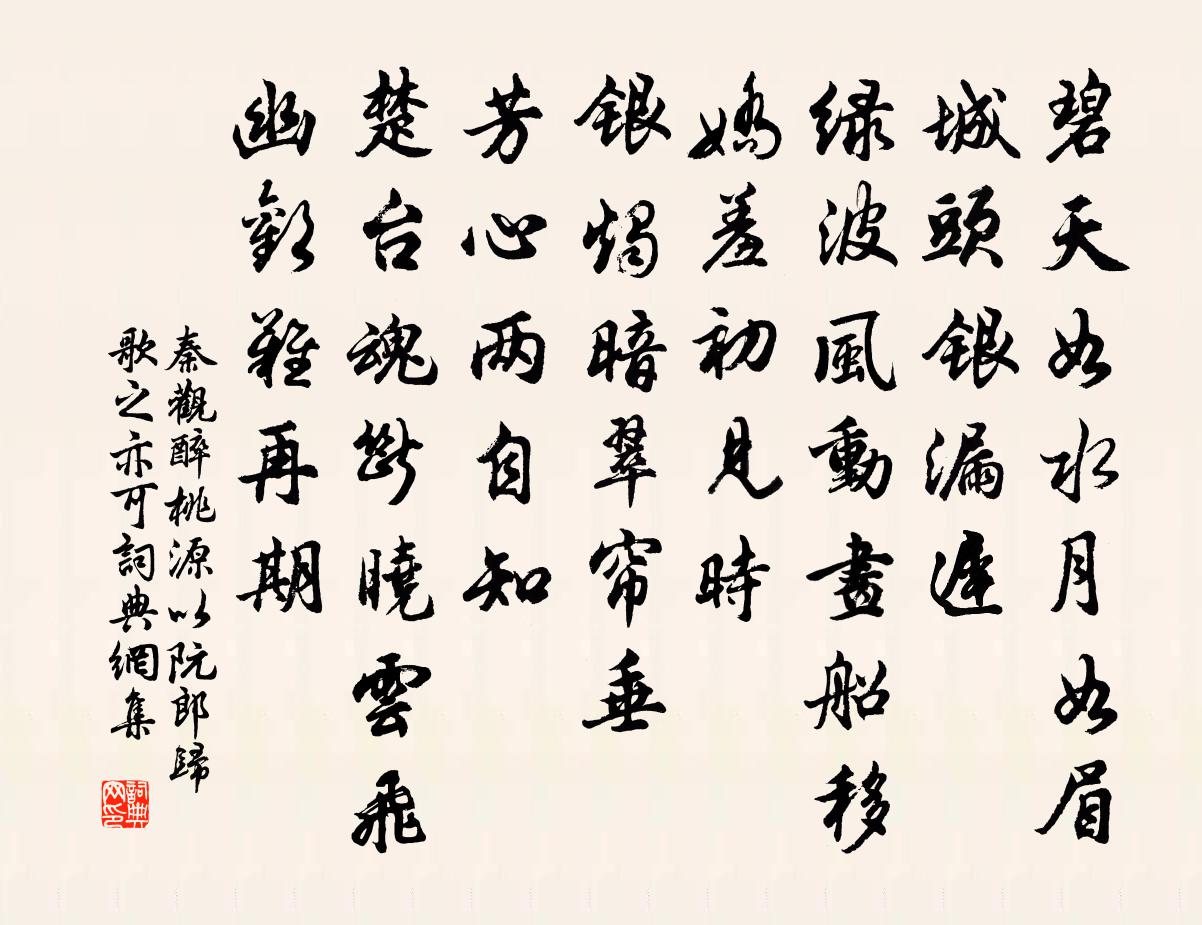 碧天如水月如眉
城頭銀漏遲
绿波風動畫船移
嬌羞初見時
銀燭暗翠帘垂
芳心两自知
楚台魂断曉雲飛
幽歡難再期
秦觀醉桃源以阮郎歸
歌之亦可詞典網集
詞典
网印